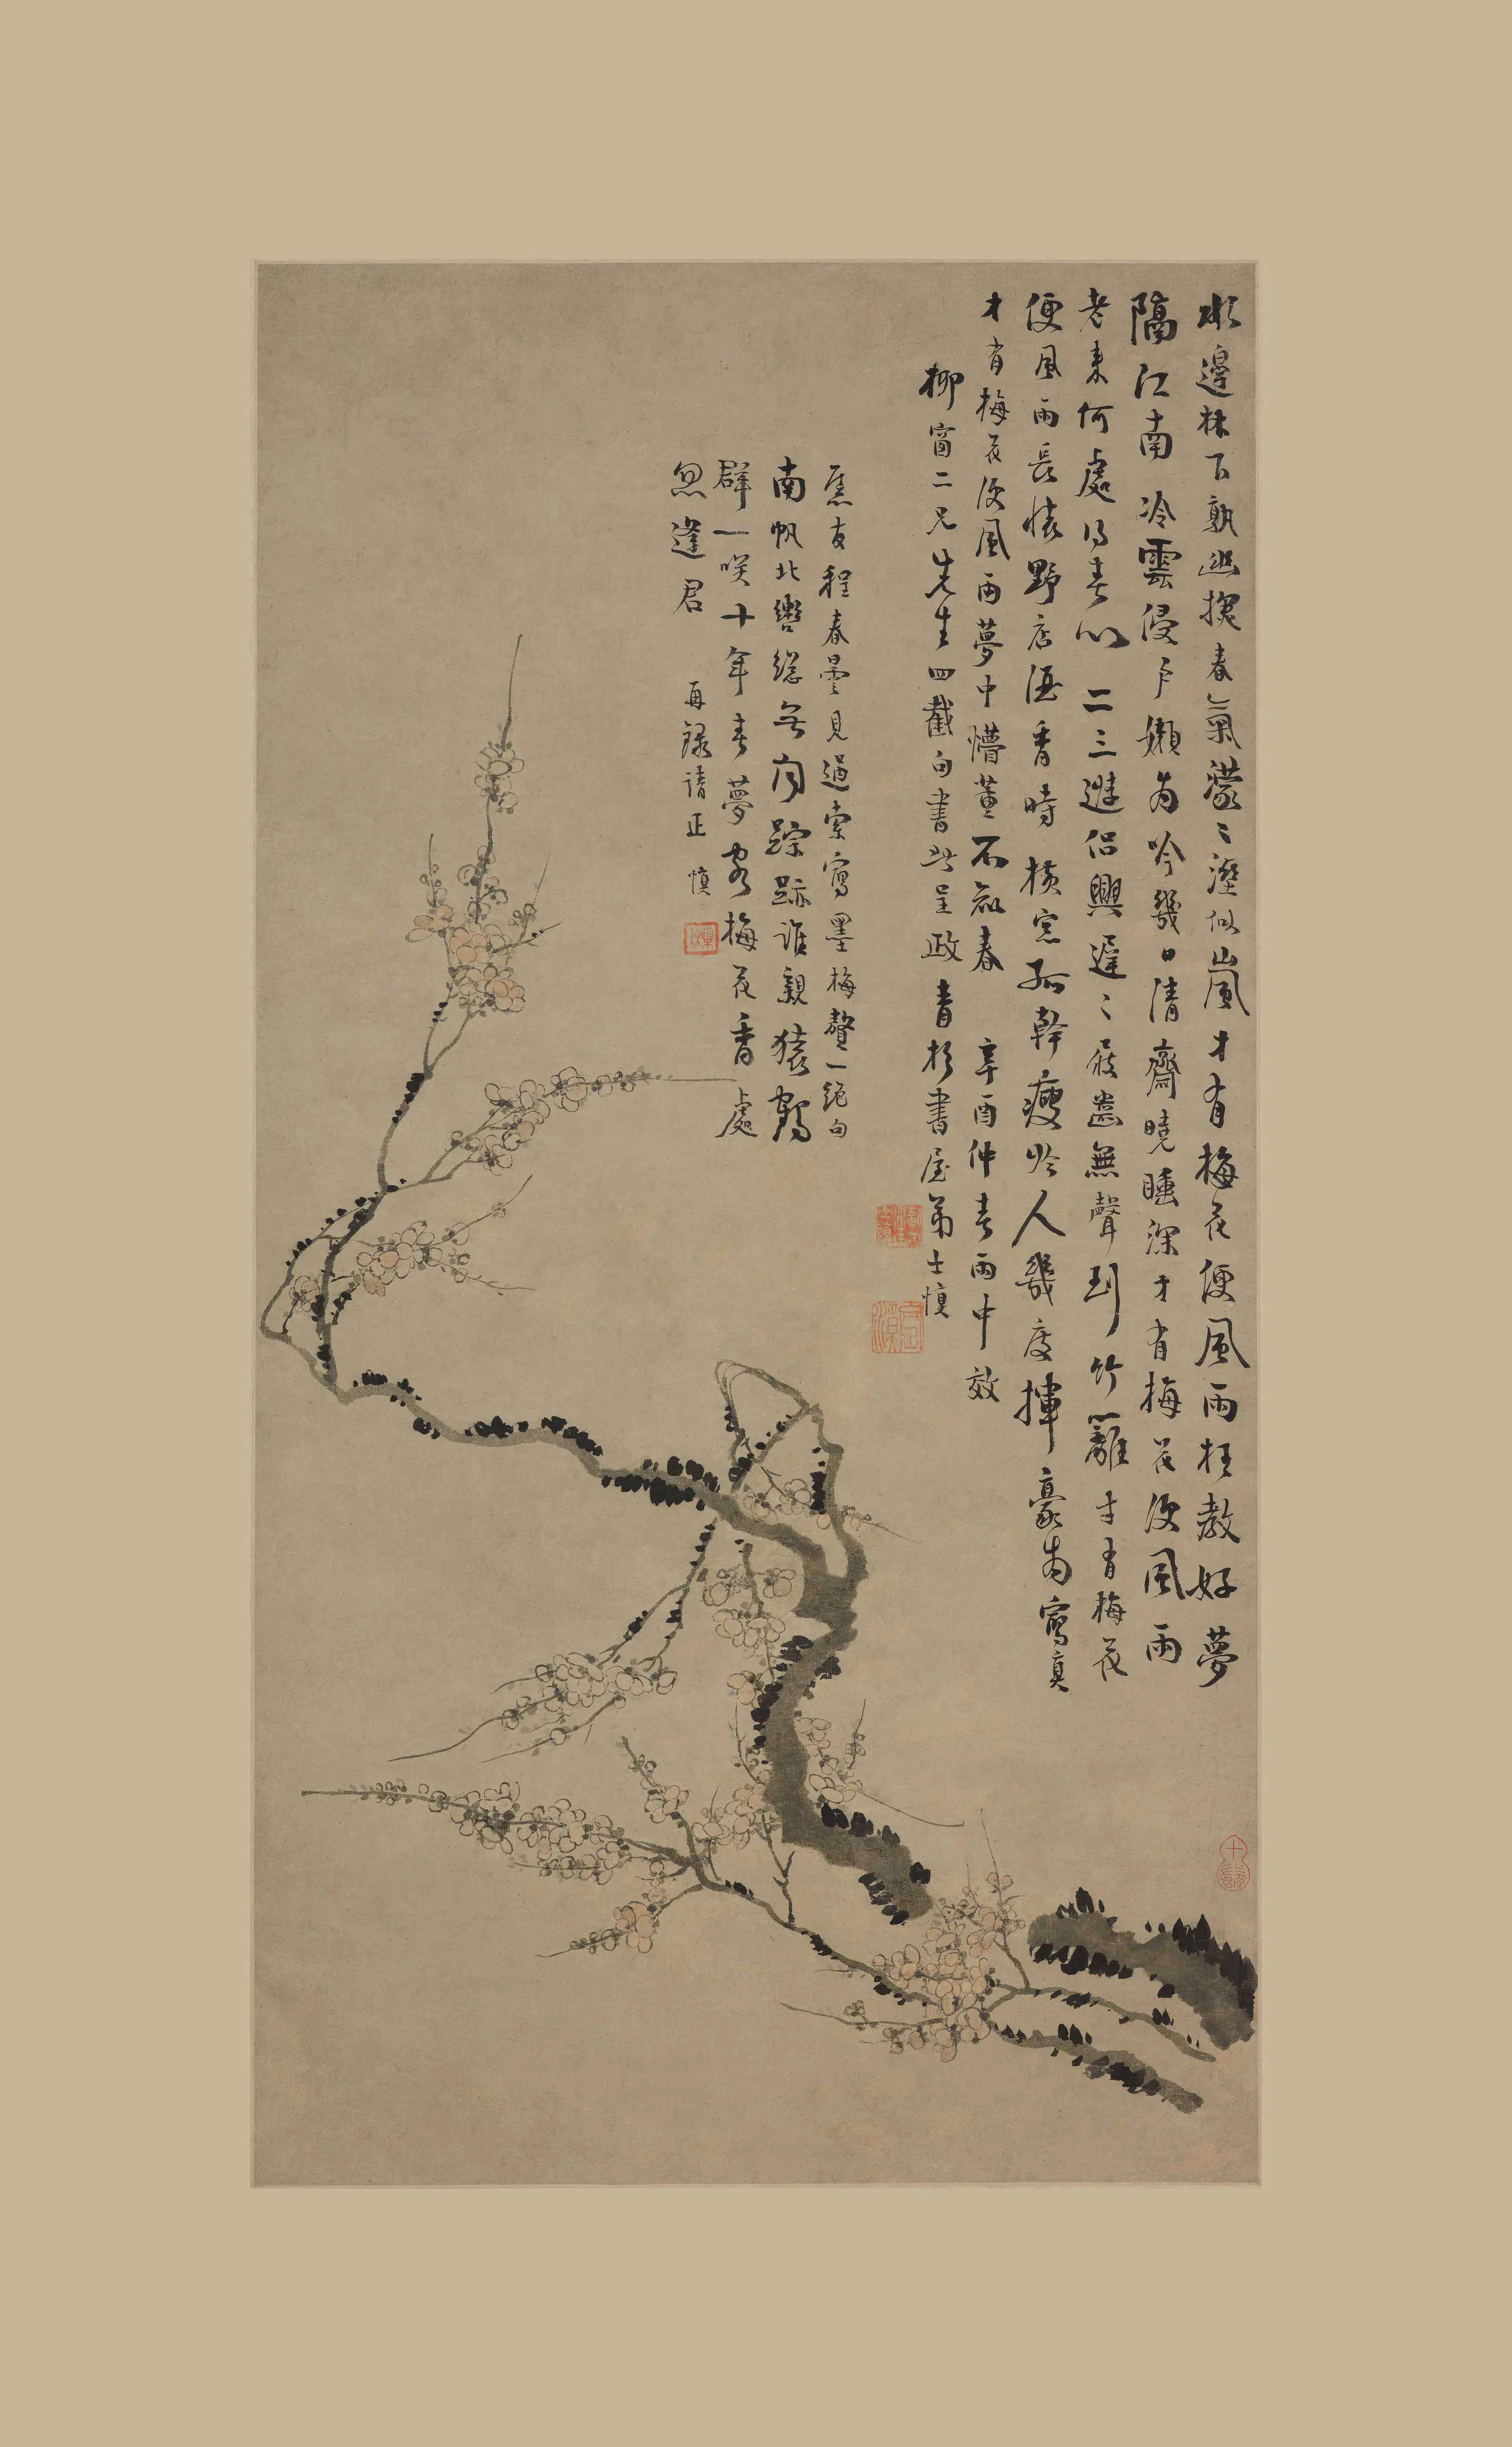 水邊林下孰幽探春氣濛〻溼似嵐才有梅花便風雨枉教好夢
隔江南冷雲侵戶嬾為吟幾日清齋曉睡深才有梅花便風雨
老來何處得春心二三遊侶興遲〻屐齒無聲到竹籬才有梅花
便風雨長懷野店酒香時橫窓孤幹瘦於人幾度揮豪為寫真
才有梅花便風雨夢中懵董不知春 辛酉仲春雨中效
柳窗二兄先生四截句書此呈政 青杉書屋弟士慎
舊友程春曇見過索寫墨梅贅一絕句
南帆北轡總無用踪跡誰親猿鶴
群一咲十年春夢客梅花香處
忽逢君 再錄請正 慎